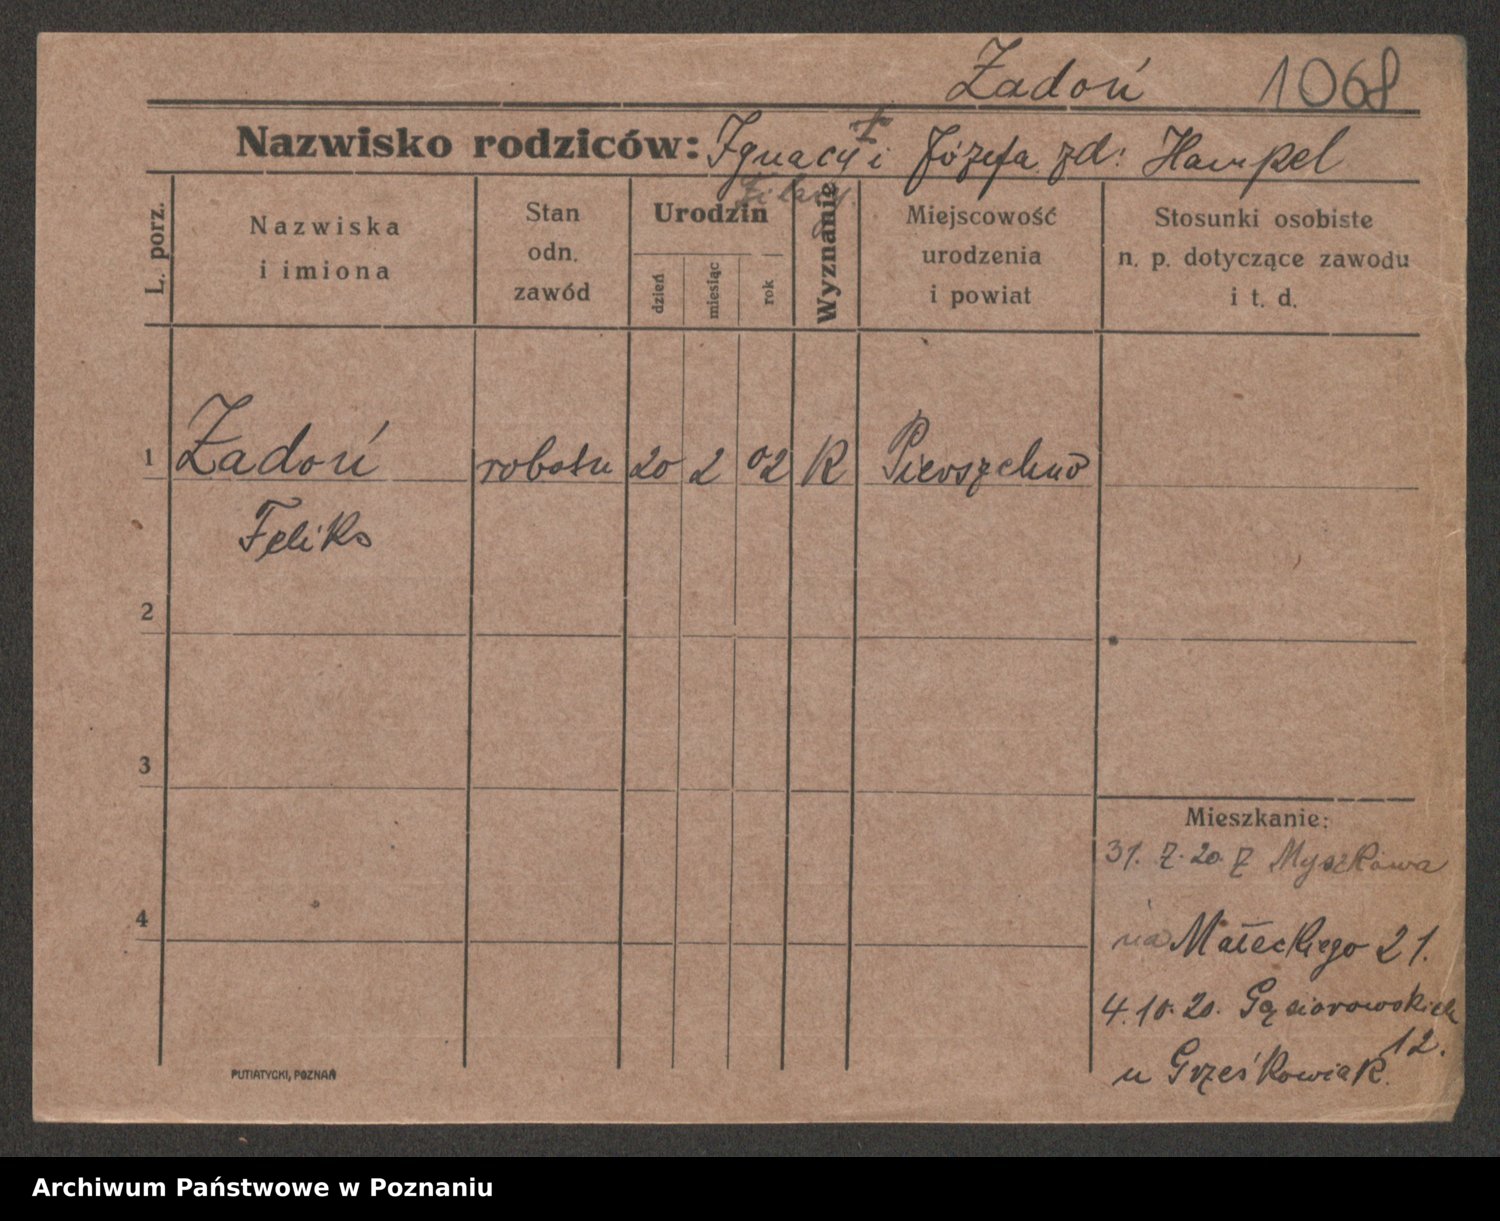 Żadoń 1068
Nazwisko rodziców: Ignacy † i Józefa zd: Hampel
L. porz.
Nazwiska
i imiona
Stan
odn.
zawód
Urodzin
dzień
miesiąc
rok
Wyznanie
Miejscowość
urodzenia
i powiat
Stosunki osobiste
n. p. dotyczące zawodu
i t. d.
1 Żadoń robotn 20 2 02 K Pierszchno
Feliks
2
3
4
Mieszkanie:
31. 7. 20. z Myszkowa
na Małeckiego 21.
4. 10. 20. Gąsiorowskich
12.
u Grześkowiak.
PUTIATYCKI, POZNAŃ
Archiwum Państwowe w Poznaniu